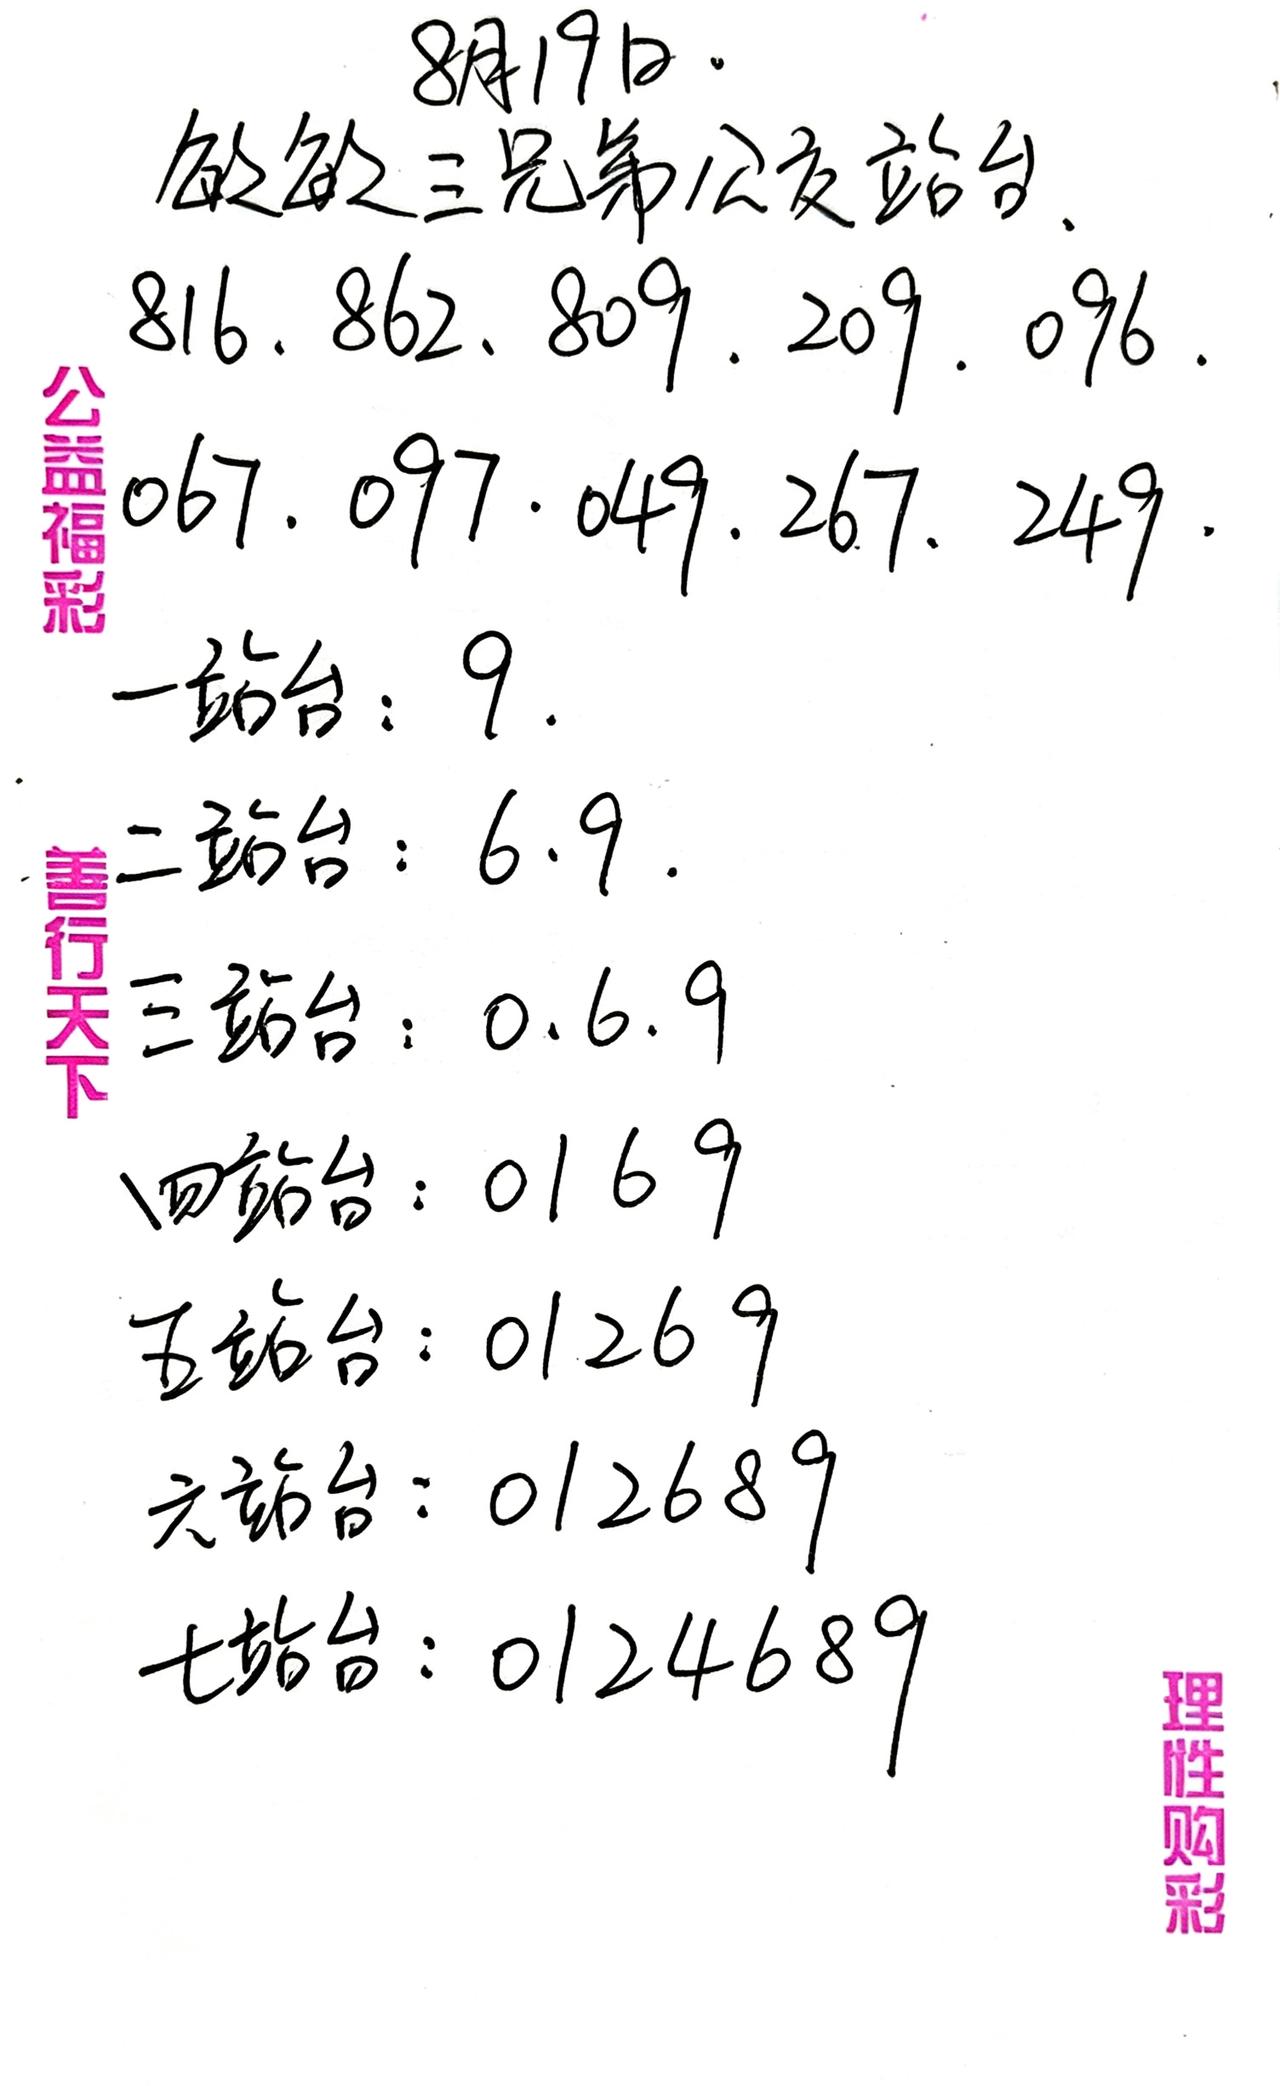 8月19日.
敏敏三兄弟公交站台、
816、862、809.209.096.
067.097.049.267.249.
一站台:9.
二站台:6.9.
三站台:0.6.9
四站台:0169
五站台:01269
六站台:012689
七站台:0124689
公益福彩
善行天下
理性购彩